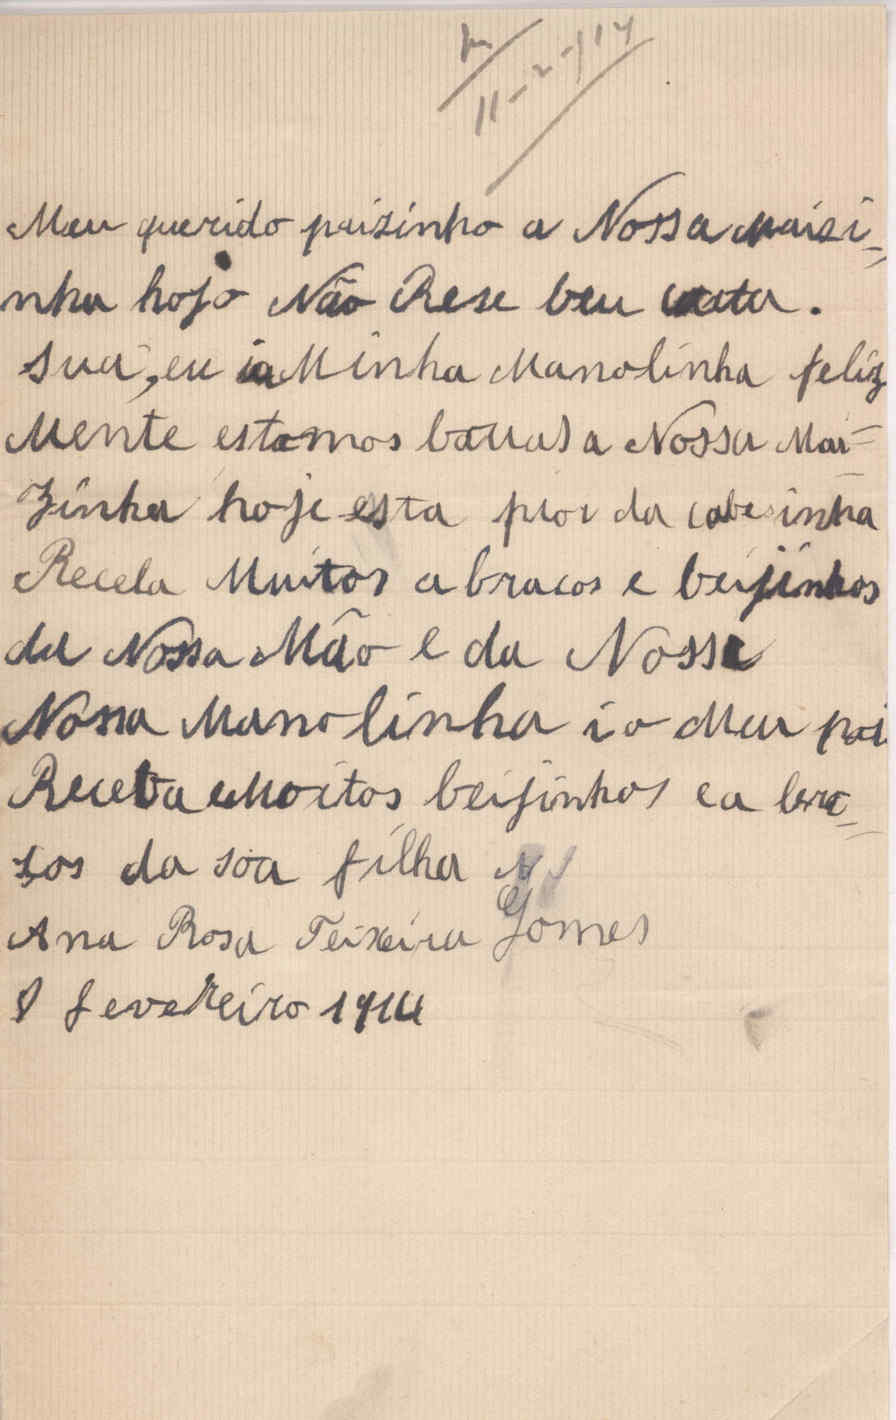 11-2-914
Meu querido paizinho a Nossa maizi-
nha hojo Não Rese beu carta.
sua, eu ia Minha Manolinha feliz
Mente estamos bouas a Nossa Mai=
zinha hoje esta pior da cabesinha
Receba Muitos abracos e beijinhos
da Nossa Mão e da Nossa
Nossa Manolinha i o Meu pai
Receba Moitos beijinhos e a bra-
ços da soa filha
Ana Rosa Teixeira Gomes
8 fevereiro 1914